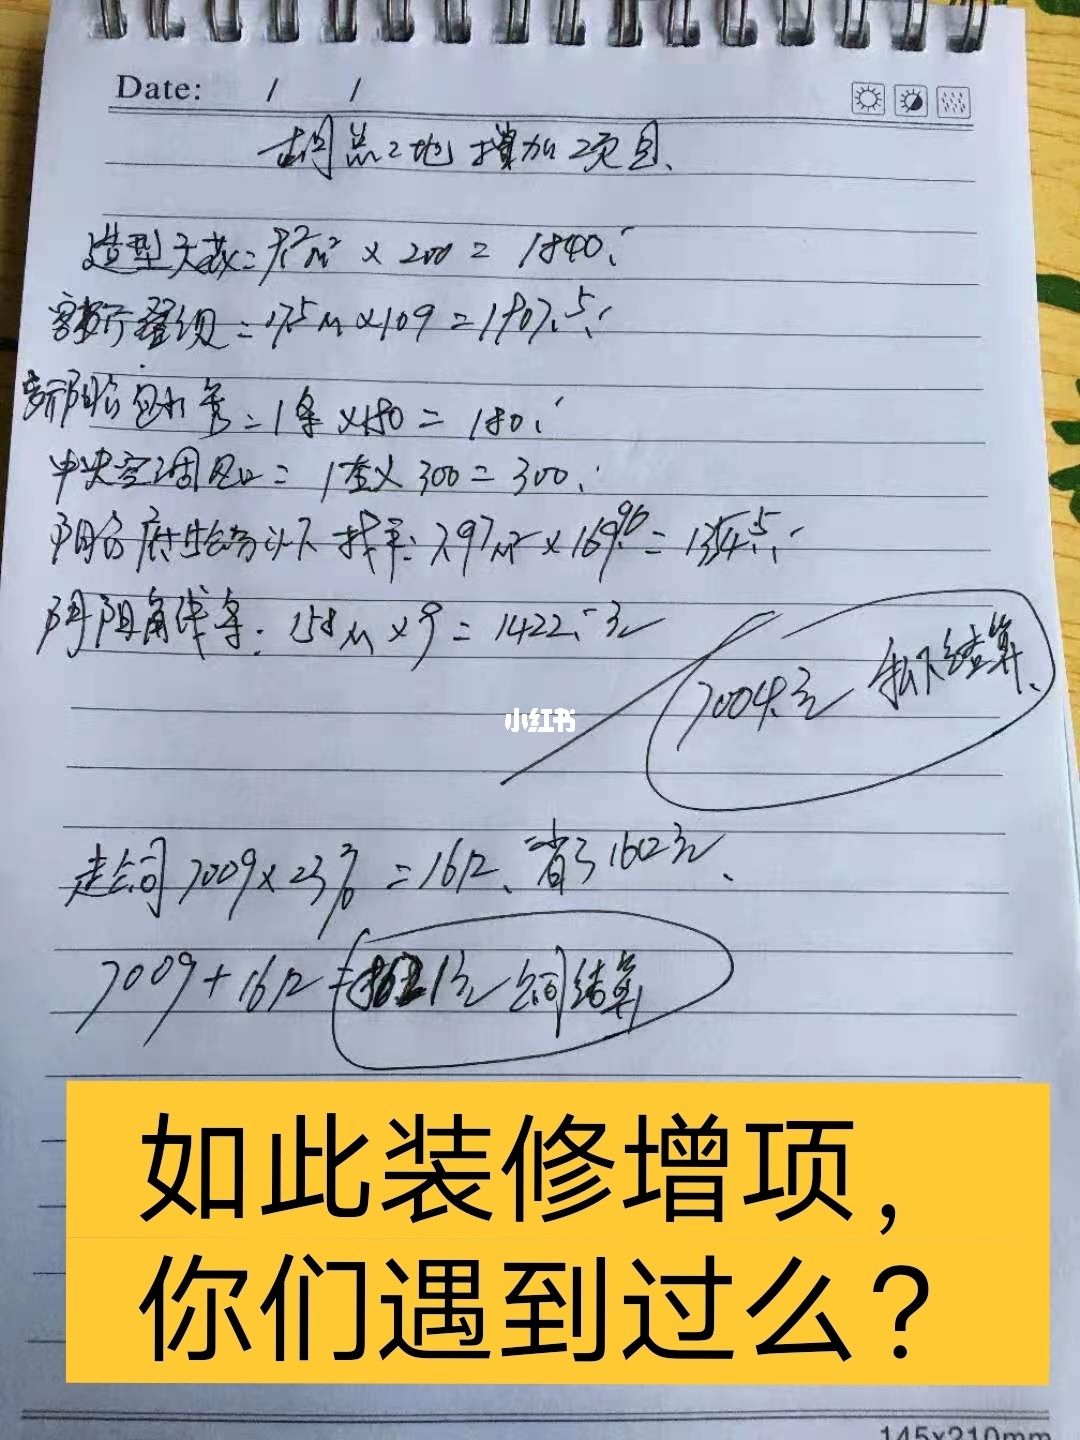 Date: / /
胡总工地增加项目.
造型天花=9.2m²×200=1840.
客餐厅叠级=17.5m×109=1907.5.
阳台包水管=1条×180=180.
中央空调风口=1套×300=300.
阳台 以下找平:7.97m²×169.96=1354.5.
阴阳角线条:158m×9=1422.元
7004.元 私下结算.
小红书
走公司7009×23%=1612.省了1602元.
7009+1612= 1元公司结算
如此装修增项,
你们遇到过么?
145x210mm